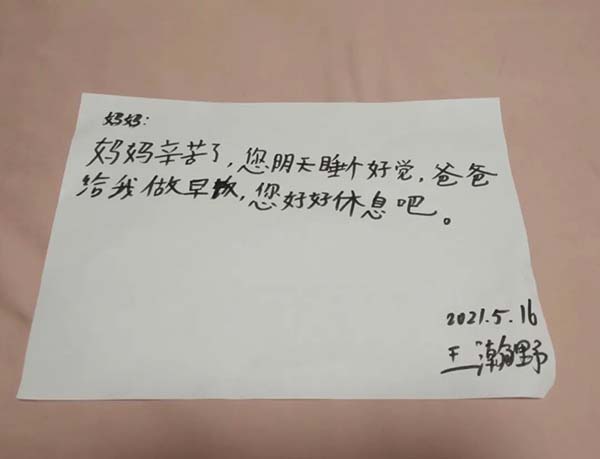 妈妈：
妈妈辛苦了，您阴天睡个好觉，爸爸
给我做早饭，您好好休息吧。
2021.5.16
王瀚野